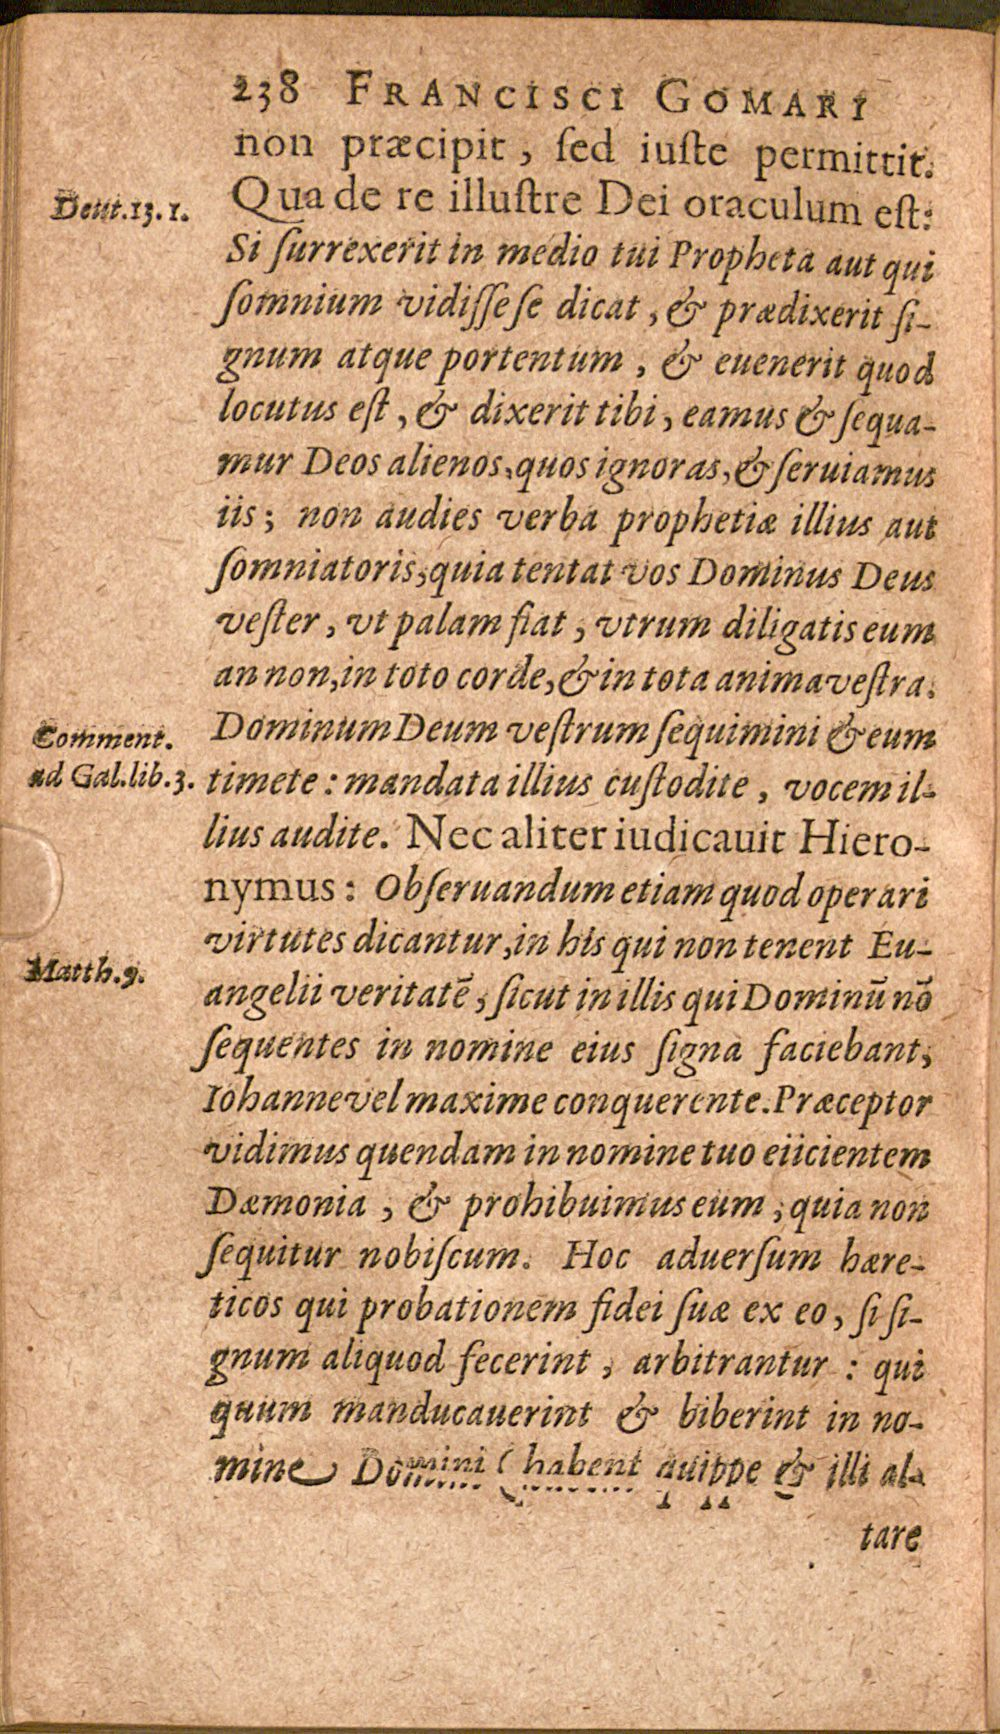 238 FRANCISCI GOMARI
non præcipit, ſed iuſte permittit.
Deut.13.1.
Qua de re illuſtre Dei oraculum eſt:
Si ſurrexerit in medio tui Propheta aut qui
ſomnium vidiſſe ſe dicat, & prædixerit ſi-
gnum atque portentum, & euenerit quod
locutus eſt, & dixerit tibi, eamus & ſequa-
mur Deos alienos, quos ignoras, & ſeruiamus
iis; non audies verba prophetiæ illius aut
ſomniatoris, quia tentat vos Dominus Deus
veſter, vt palam fiat, vtrum diligatis eum
an non, in toto corde, & in tota anima veſtra.
Dominum Deum veſtrum ſequimini & eum
Comment.
ad Gal.lib.3.
timete: mandata illius cuſtodite, vocem il-
lius audite. Nec aliter iudicauit Hiero-
nymus: Obſeruandum etiam quod operari
virtutes dicantur, in his qui non tenent Eu-
Matth.9.
angelii veritatē, ſicut in illis qui Dominū nō
ſequentes in nomine eius ſigna faciebant,
Iohanne vel maxime conquerente. Præceptor
vidimus quendam in nomine tuo eiicientem
Dæmonia, & prohibuimus eum, quia non
ſequitur nobiſcum. Hoc aduerſum hære-
ticos qui probationem fidei ſuæ ex eo, ſi ſi-
gnum aliquod fecerint, arbitrantur: qui
quum manducauerint & biberint in no-
mine Domini (habent quippe & illi al-
tare